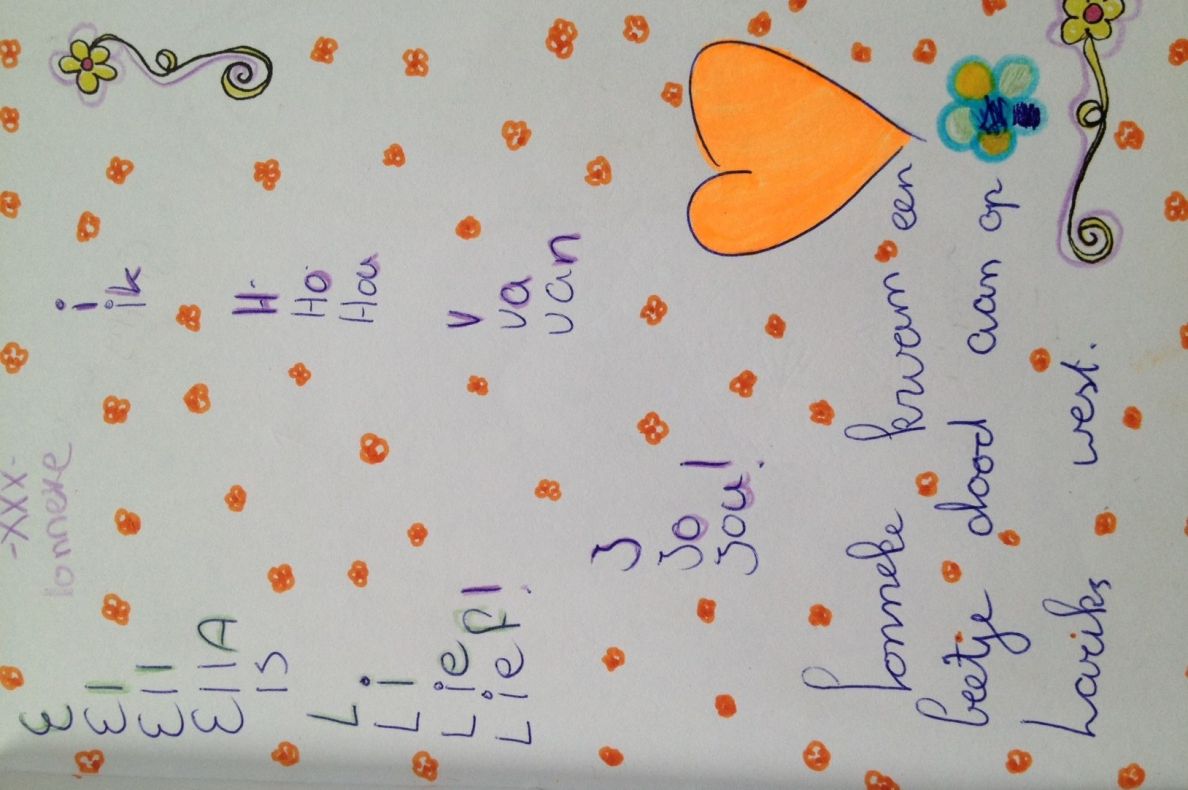 -xxx-
lonneke
E
El
Ell
EllA
is
L
Li
Lie
Lief!
i
ik
H
Ho
Hou
v
va
van
J
Jo
Jou!
Lonneke kwam een
beetje dood aan op
Lariks west.